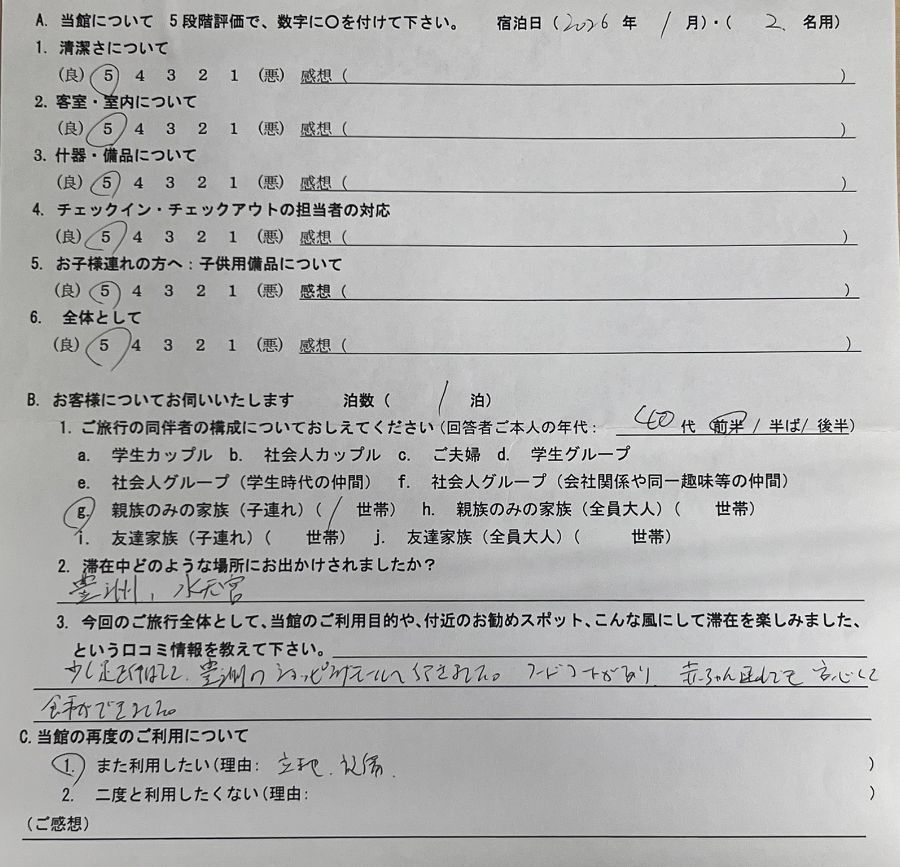 A. 当館について 5段階評価で、数字に〇を付けて下さい。 宿泊日(2026年 1月)・( 2 名用)
1. 清潔さについて
(良) 5 4 3 2 1 (悪) 感想( )
2. 客室・室内について
(良) 5 4 3 2 1 (悪) 感想( )
3. 什器・備品について
(良) 5 4 3 2 1 (悪) 感想( )
4. チェックイン・チェックアウトの担当者の対応
(良) 5 4 3 2 1 (悪) 感想( )
5. お子様連れの方へ:子供用備品について
(良) 5 4 3 2 1 (悪) 感想( )
6. 全体として
(良) 5 4 3 2 1 (悪) 感想( )
B. お客様についてお伺いいたします 泊数( 1 泊)
1. ご旅行の同伴者の構成についておしえてください(回答者ご本人の年代: 40 代 前半/半ば/後半)
a. 学生カップル b. 社会人カップル c. ご夫婦 d. 学生グループ
e. 社会人グループ(学生時代の仲間) f. 社会人グループ(会社関係や同一趣味等の仲間)
g. 親族のみの家族(子連れ)( 1 世帯) h. 親族のみの家族(全員大人)( 世帯)
i. 友達家族(子連れ)( 世帯) j. 友達家族(全員大人)( 世帯)
2. 滞在中どのような場所にお出かけされましたか?
豊洲、水天宮
3. 今回のご旅行全体として、当館のご利用目的や、付近のお勧めスポット、こんな風にして滞在を楽しみました、
という口コミ情報を教えて下さい。
少し足を伸ばして、豊洲のショッピングモールへ行きました。フードコートがあり、赤ちゃん連れでも安心して
食事ができました。
C. 当館の再度のご利用について
1. また利用したい(理由: 立地、設備、 )
2. 二度と利用したくない(理由: )
(ご感想)